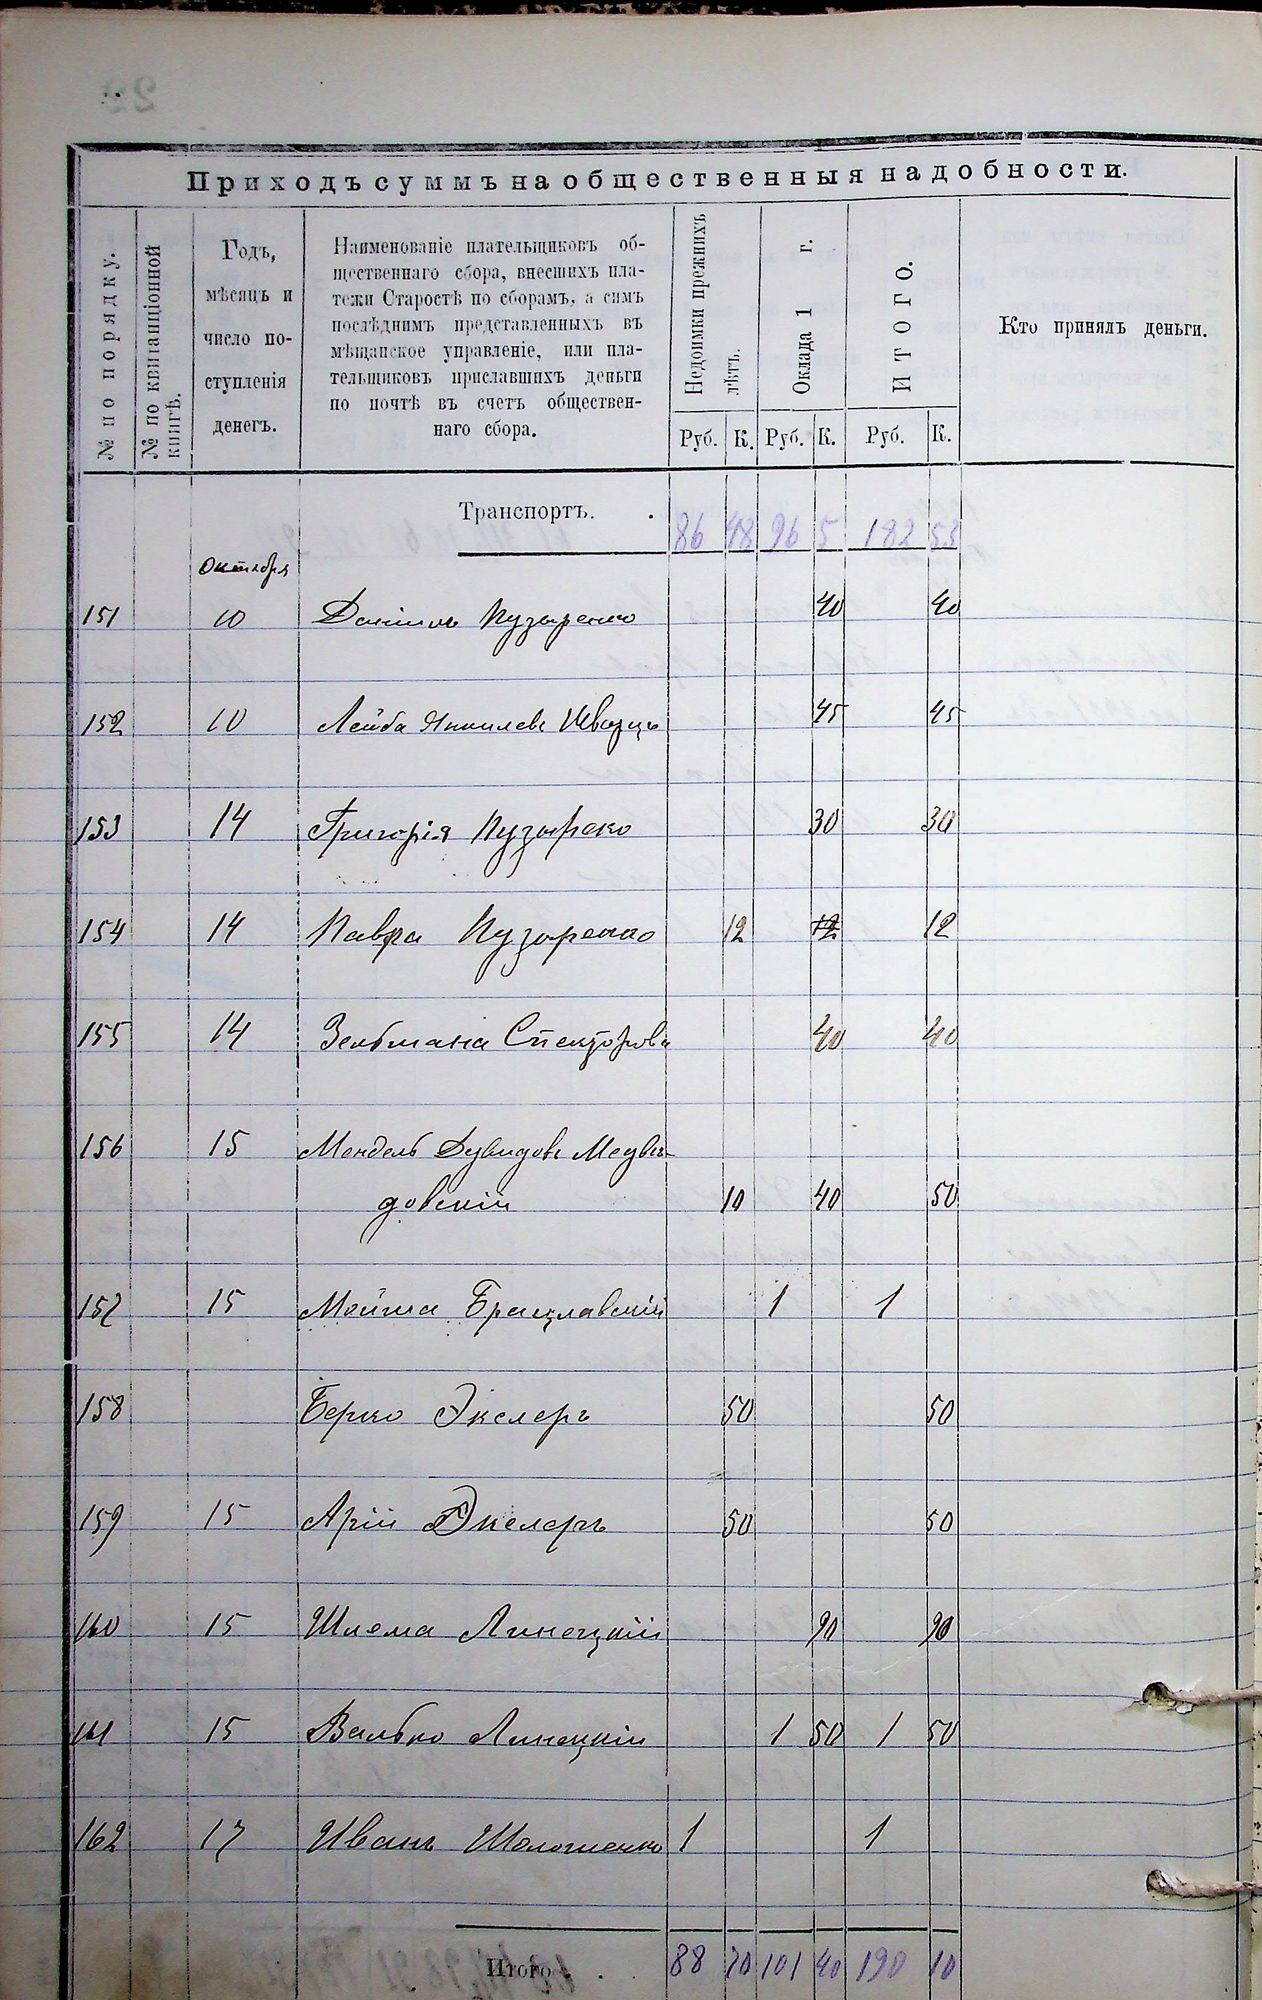 Приходъ суммъ на общественныя надобности.
№ по порядку.
№ по квитанціонной
книгѣ.
Годъ,
мѣсяцъ и
число по-
ступленія
денегъ.
Наименованіе плательщиковъ об-
щественнаго сбора, внесшихъ пла-
тежи Старостѣ по сборамъ, а симъ
послѣднимъ представленныхъ въ
мѣщанское управленіе, или пла-
тельщиковъ приславшихъ деньги
по почтѣ въ счетъ обществен-
наго сбора.
Недоимки прежнихъ
лѣтъ.
Оклада 1 г.
ИТОГО.
Кто принялъ деньги.
Руб. К. Руб. К. Руб. К.
Транспортъ. . 86 48 96 5 182 53
Октября
151 10 Даніилъ Пузыренко 40 40
152 10 Лейба Янкилевъ Шварцъ 45 45
153 14 Григорія Пузырско 30 30
154 14 Павра Пузыренко 12 12 12
155 14 Зельмана Спекторовъ 40 40
156 15 Мендель Дувидовъ Медвѣ-
довскій 10 40 50
157 15 Мойша Брацлавскій 1 1
158 Берко Экслеръ 50 50
159 15 Арій Экслеръ 50 50
160 15 Шлема Линецкій 90 90
161 15 Волько Линецкій 1 50 1 50
162 17 Иванъ Шолошенко 1 1
Итого . . . 88 70 101 40 190 10